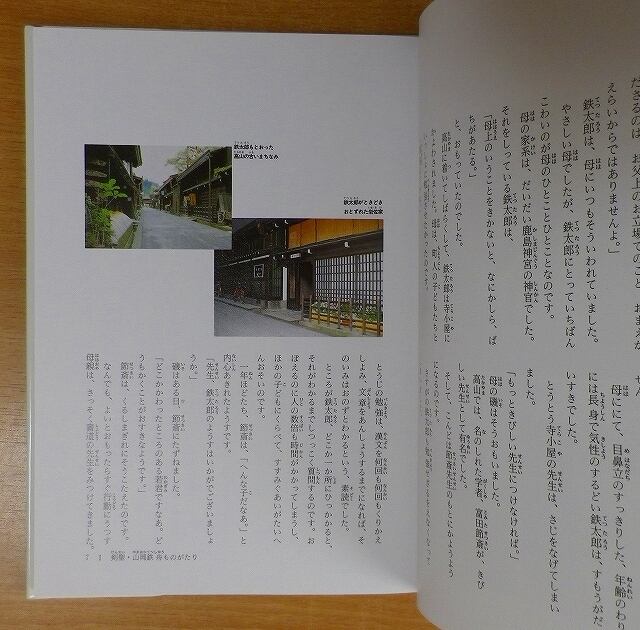 えらいからではありませんよ。」
鉄太郎は、母にいつもそういわれていました。
やさしい母でしたが、鉄太郎にとっていちばん
こわいのが母のひとことひとことなのです。
母の家系は、だいだい鹿島神宮の神官でした。
それをしっている鉄太郎は、
「母上のいうことをきかないと、なにかしら、ば
ちがあたる。」
と、おもっていたのでした。
高山に着いてしばらくして、鉄太郎は寺小屋に
母ににて、目鼻立のすっきりした、年齢のわり
には長身で気性のするどい鉄太郎は、すもうがだ
いすきでした。
とうとう寺小屋の先生は、さじをなげてしまい
ました。
「もっときびしい先生につけなければ。」
母の磯はそうおもいました。
高山では、名のしれた学者、富田節斎が、きび
しい先生として有名でした。
そして、こんどは節斎先生のもとにかようよう
になったのです。
鉄太郎がときどき
おとずれた
鉄太郎もとおった
高山の古いまちなみ
とうじの勉強は、漢文を何回も何回もくりかえ
しよみ、文章をあんしょうするまでになれば、そ
のいみはおのずとわかるという、素読でした。
ところが鉄太郎は、どこか一か所にひっかかると、
それがわかるまでしつっこく質問するのです。お
ぼえるのに人の数倍も時間がかかってしまうし、
ほかの子どもにくらべて、すすみぐあいがたいへ
んおそいのです。
一年ほどたち、節斎は、「へんな子だなあ。」と
内心あきれたようすです。
「先生、鉄太郎のようすはいかがでございましょ
うか。」
磯はある日、節斎にたずねました。
「どこかかわったところのある若君ですなあ。ど
うもかくことがおすきなようです。」
節斎は、くるしまぎれにそうこたえたのです。
なんでも、よいとおもったらすぐ行動にうつす
母親は、さっそく書道の先生をみつけてきました。
7 1 剣聖・山岡鉄舟ものがたり